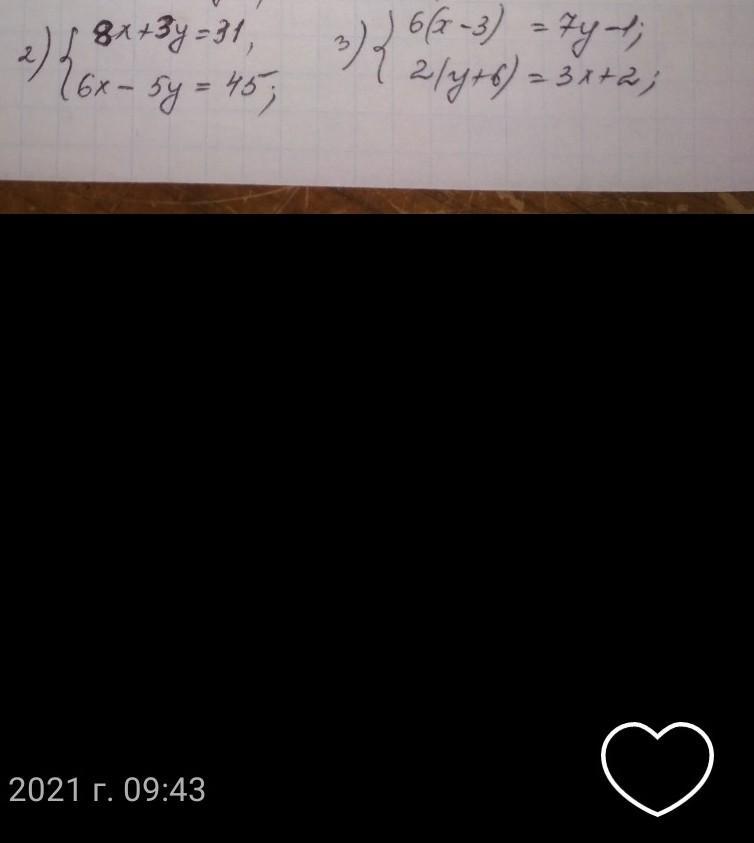 2) { 8x+3y=31,
6x - 5y = 45;
3) { 6(x-3) = 7y-1;
2(y+6) = 3x+2;
2021 г. 09:43